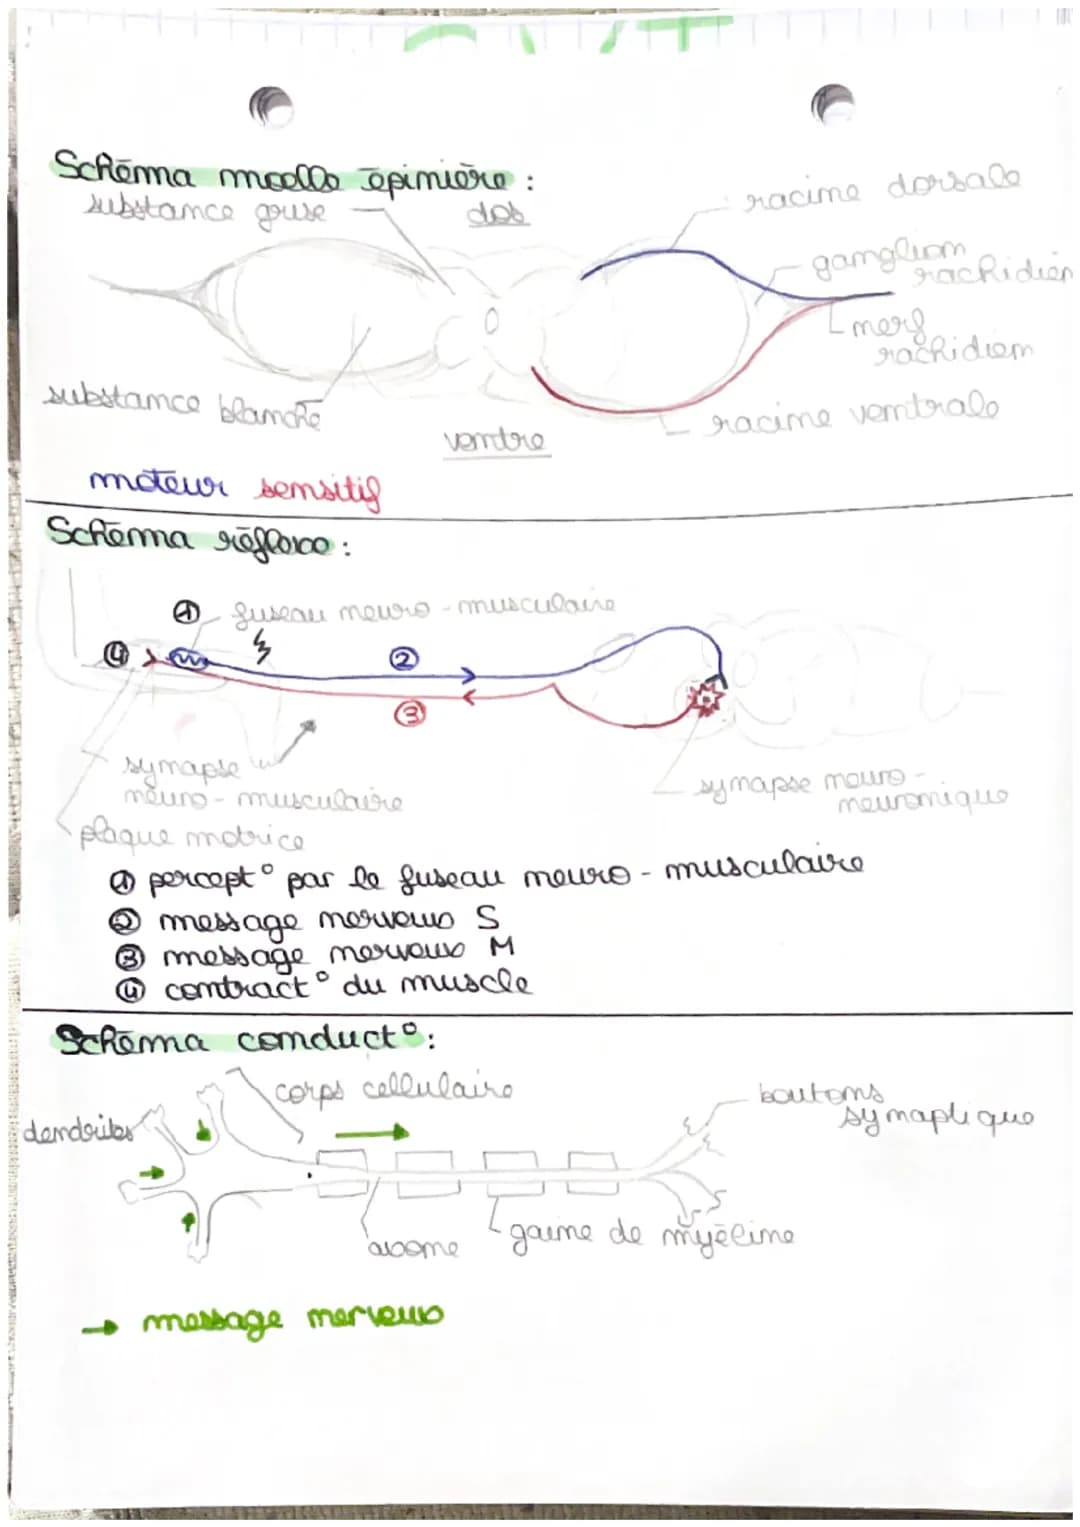 Schéma moelle épinière :
substance grise
dos
racine dorsale
ganglion
rachidien
nerf
rachidien
substance blanche
racine ventrale
ventre
moteur sensitif
Schéma réflexe :
① fuseau neuro-musculaire
④
②
③
synapse
neuro-musculaire
synapse neuro-
neuronique
plaque motrice
① percept° par le fuseau neuro-musculaire
② message nerveux S
③ message nerveux M
④ contract° du muscle
Schéma conduct° :
corps cellulaire
boutons
synaptique
dendrites
axone
gaine de myéline
→ message nerveux